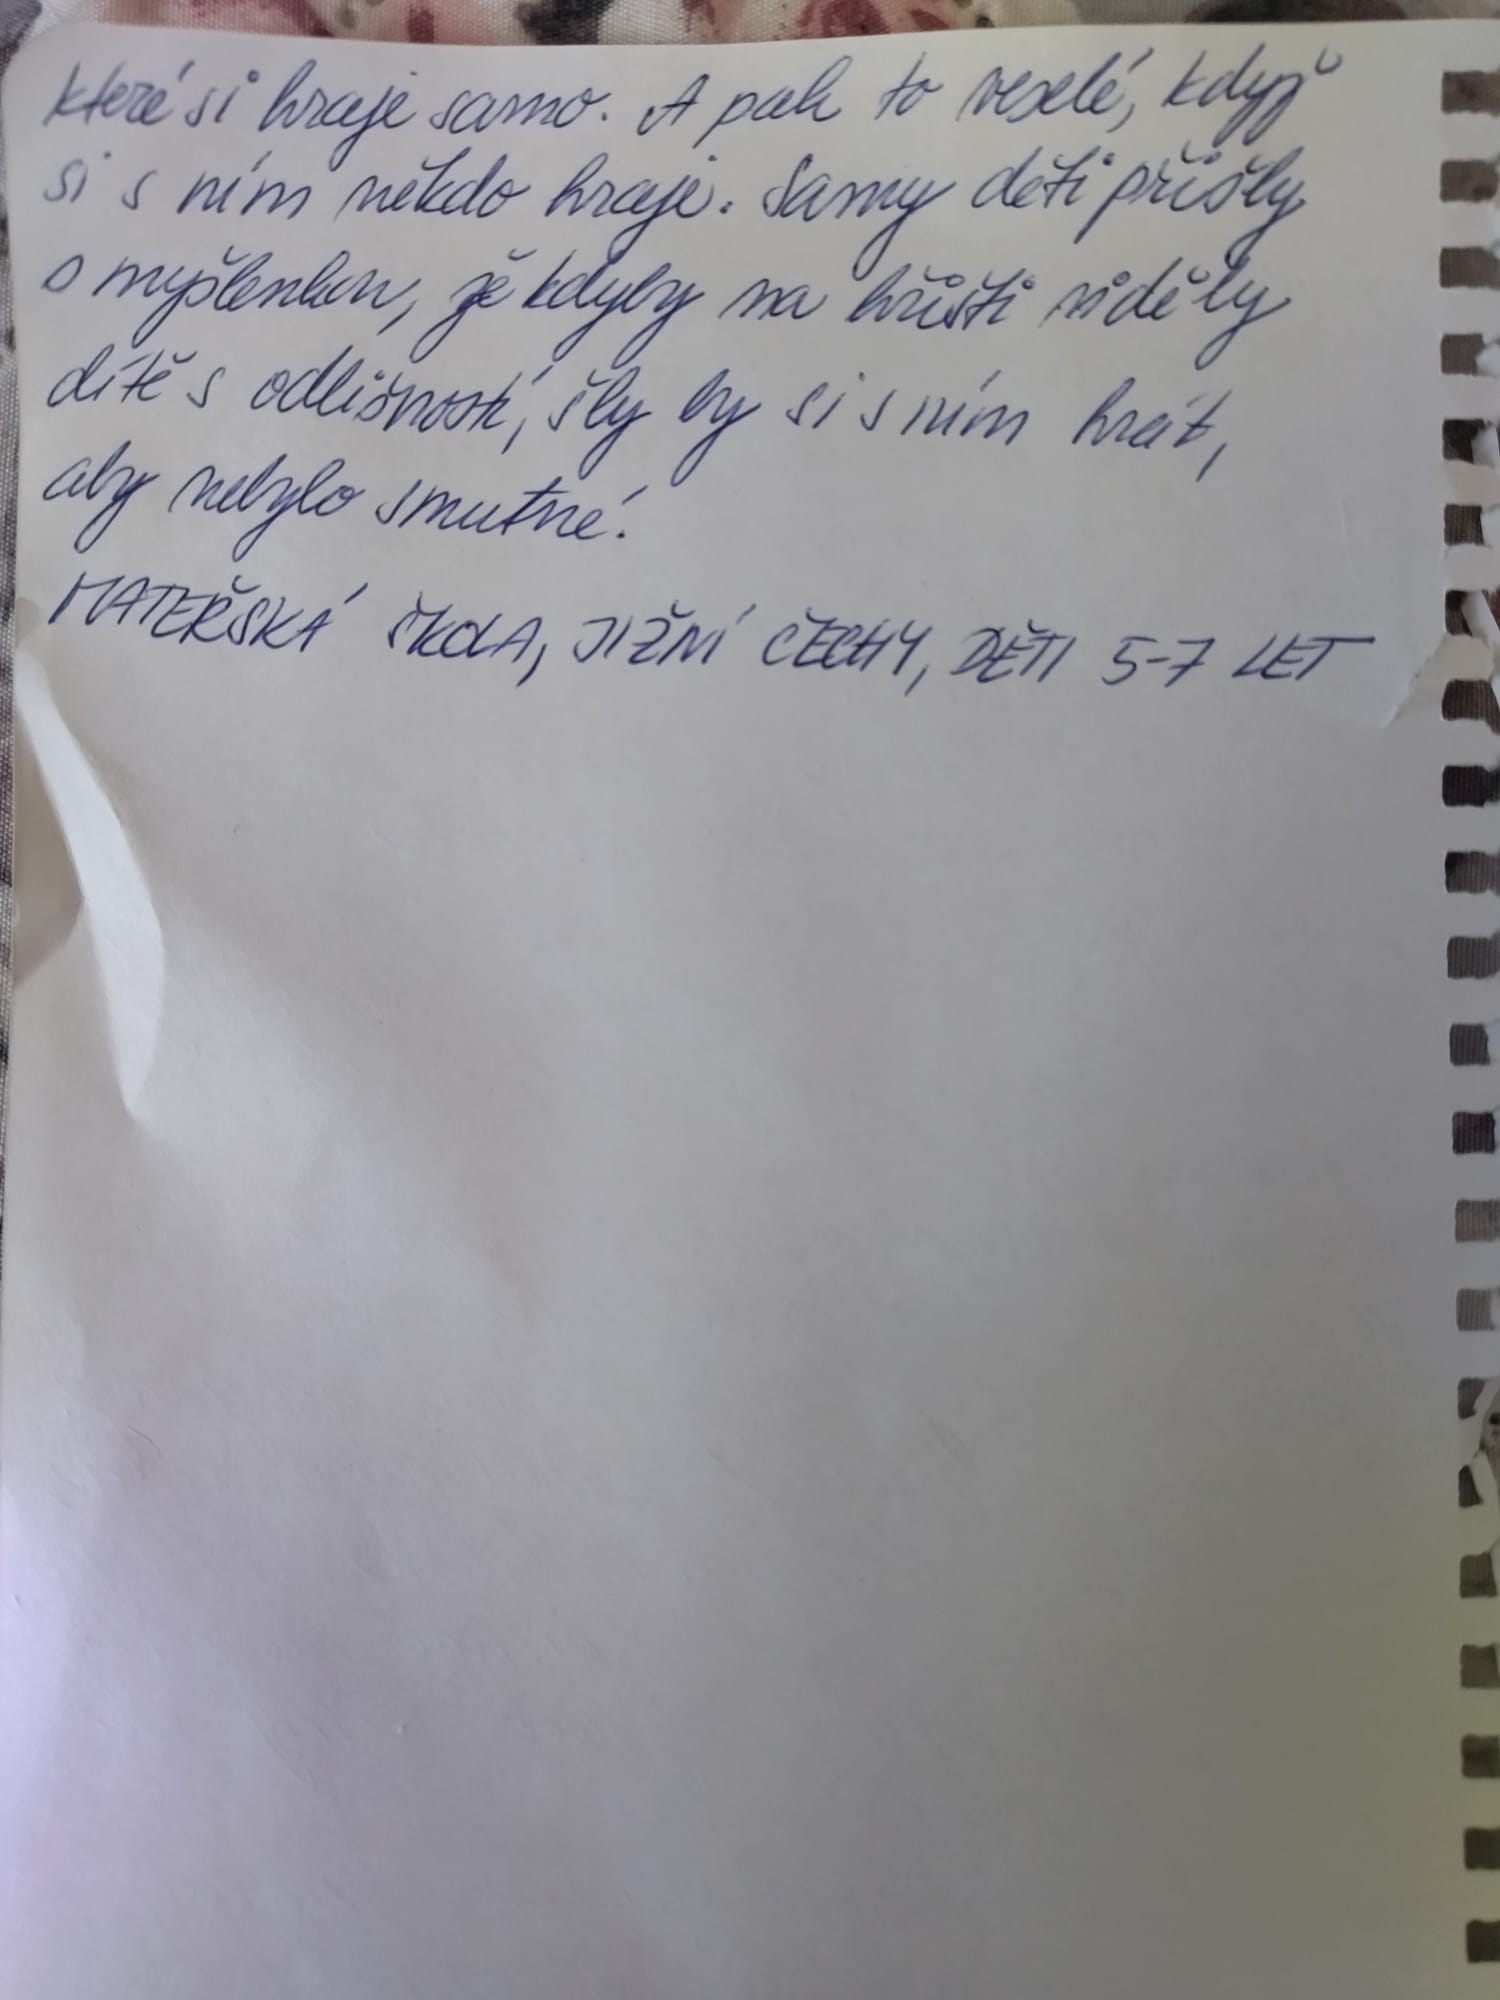 které si hraje samo. A pak to veselé, když
si s ním někdo hraje. Samy děti přišly
s myšlenkou, že kdyby na hřišti viděly
dítě s odlišností, šly by si s ním hrát,
aby nebylo smutné.
MATEŘSKÁ ŠKOLA, JIŽNÍ ČECHY, DĚTI 5-7 LET